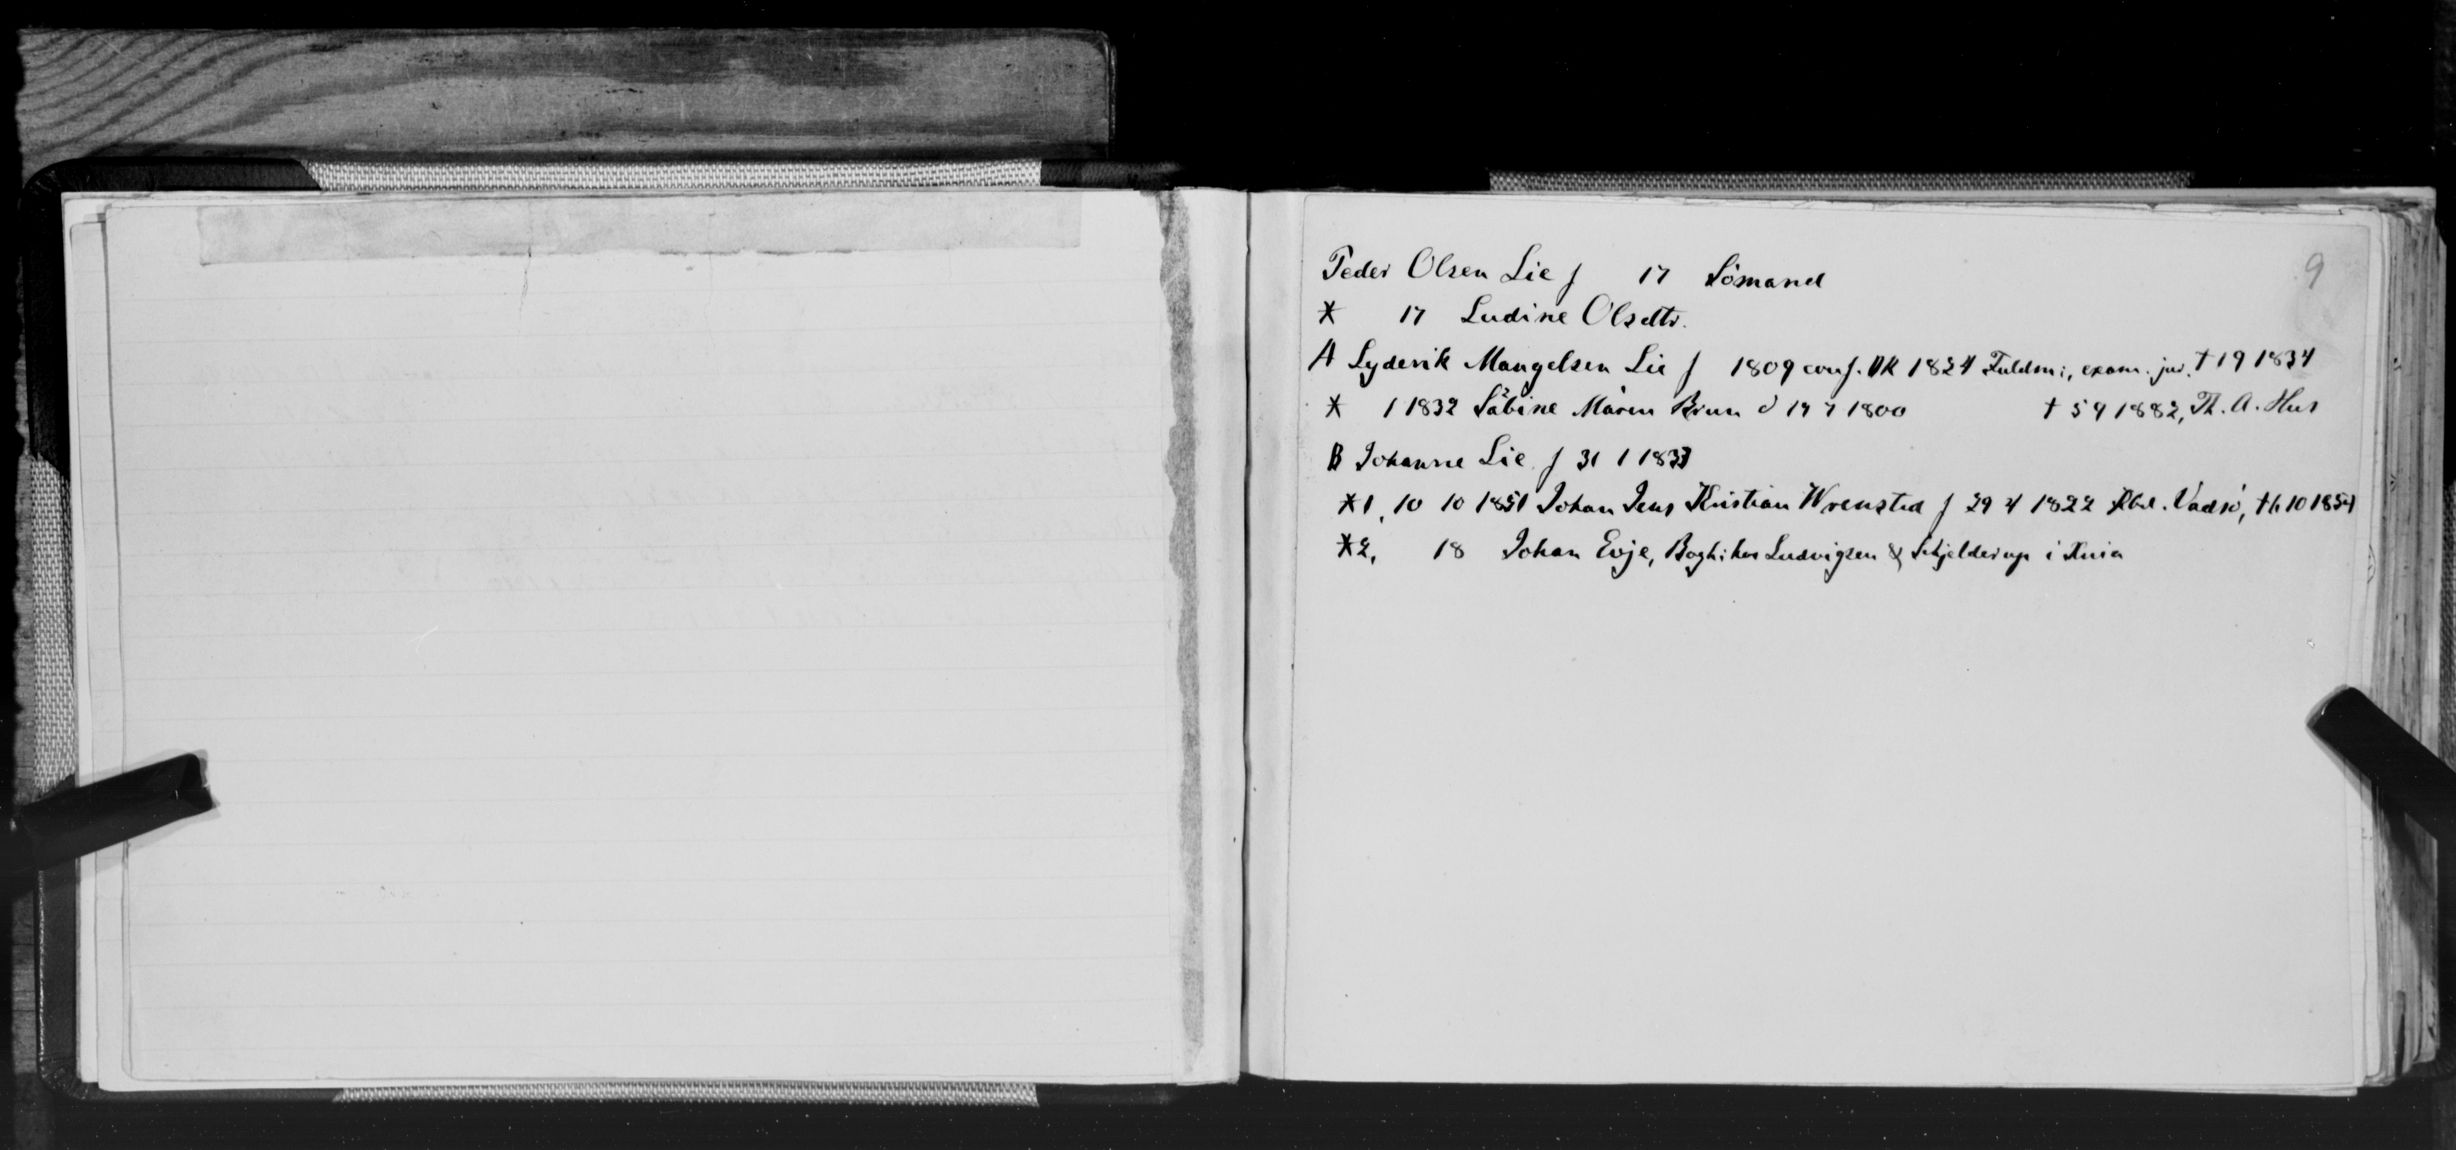 9
Peder Olsen Lie f 17 Sömand
* 17 Ludine Olsdtr.
A Lyderik Mangelsen Lie f 1809 conf. DK 1824 Fuldm:, exam. jur. † 19 1834
* 1 1832 Sabine Maren Bruun d 17 7 1800 † 5 9 1882, Th. A. Hus
B Johanne Lie f 31 1 1833
*1, 10 10 1851 Johan Jens Kristian Wrensted f 29 4 1822 Vadsö, † 6 10 1854
*2, 18 Johan Evje, Bogh: hos Ludvigsen & Schjelderup i Kria